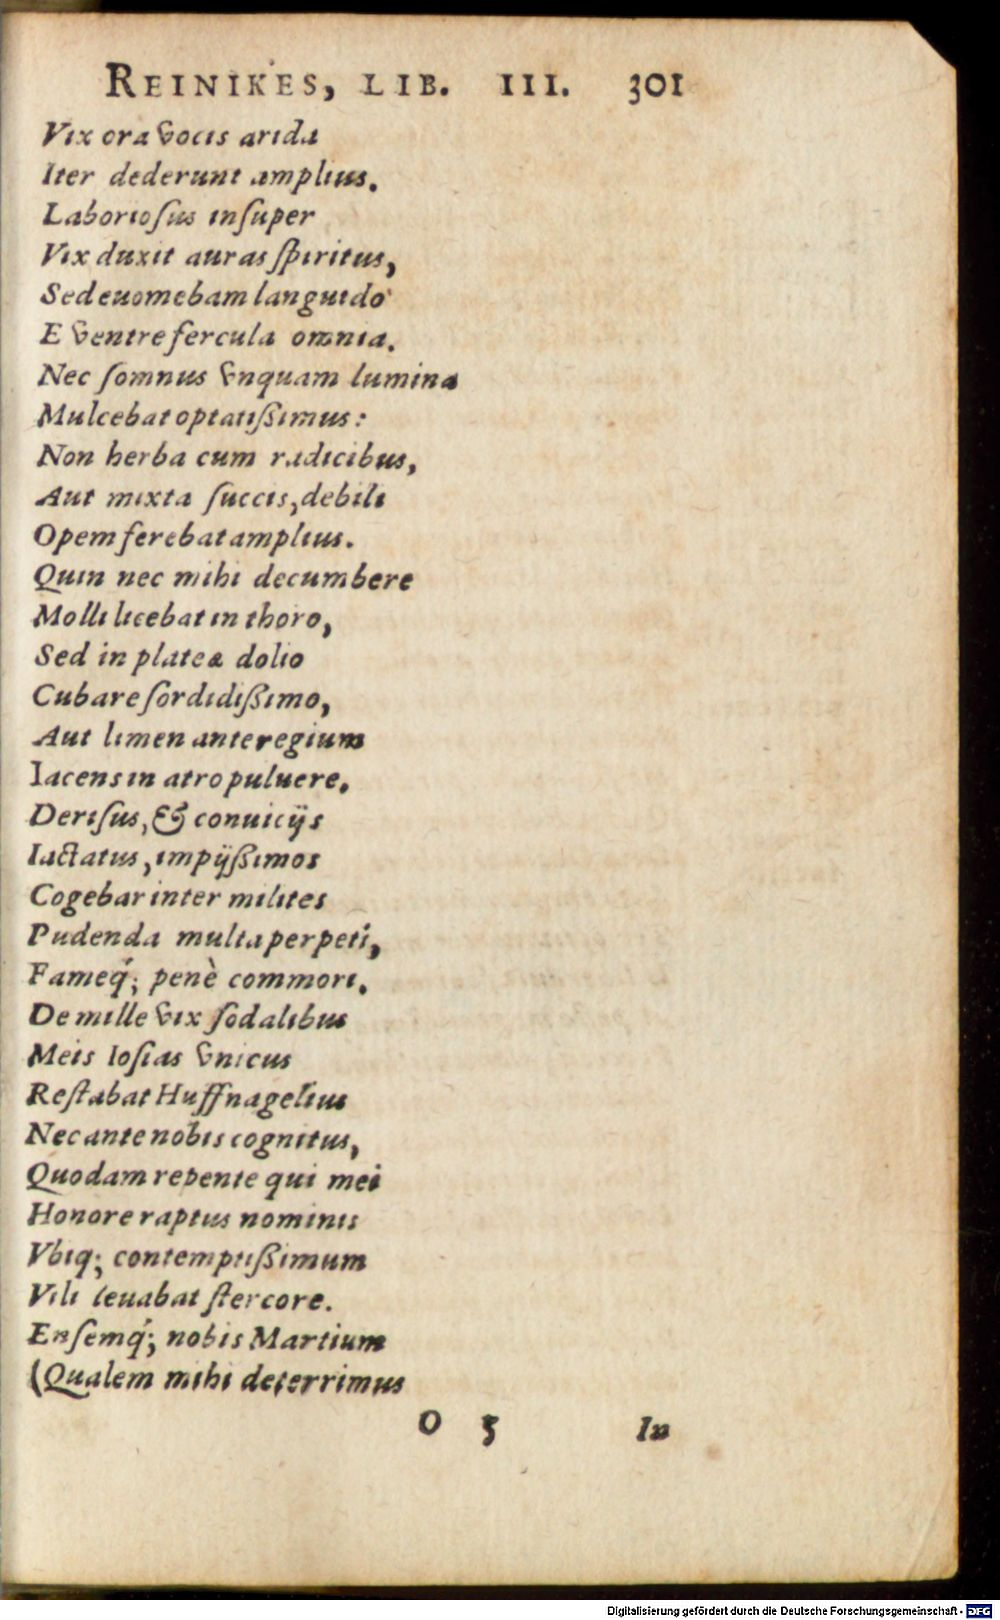 REINIKES, LIB. III. 301
Vix ora vocis arida
Iter dederunt amplius.
Laboriosus insuper
Vix duxit auras spiritus,
Sed euomebam languido
E ventre fercula omnia.
Nec somnus vnquam lumina
Mulcebat optatissimus:
Non herba cum radicibus,
Aut mixta succis, debili
Opem ferebat amplius.
Quin nec mihi decumbere
Molli licebat in thoro,
Sed in platea dolio
Cubare sordidissimo,
Aut limen ante regium
Iacens in atro puluere.
Derisus, & conuicijs
Iactatus, impijssimos
Cogebar inter milites
Pudenda multa perpeti,
Fameq́; penè commori.
De mille vix sodalibus
Meis Iosias vnicus
Restabat Huffnagelius
Nec ante nobis cognitus,
Quodam repente qui mei
Honore raptus nominis
Vbiq; contemptissimum
Vili leuabat stercore.
Ensemq́; nobis Martium
(Qualem mihi deterrimus
O 5 In
Digitalisierung gefördert durch die Deutsche Forschungsgemeinschaft - DFG